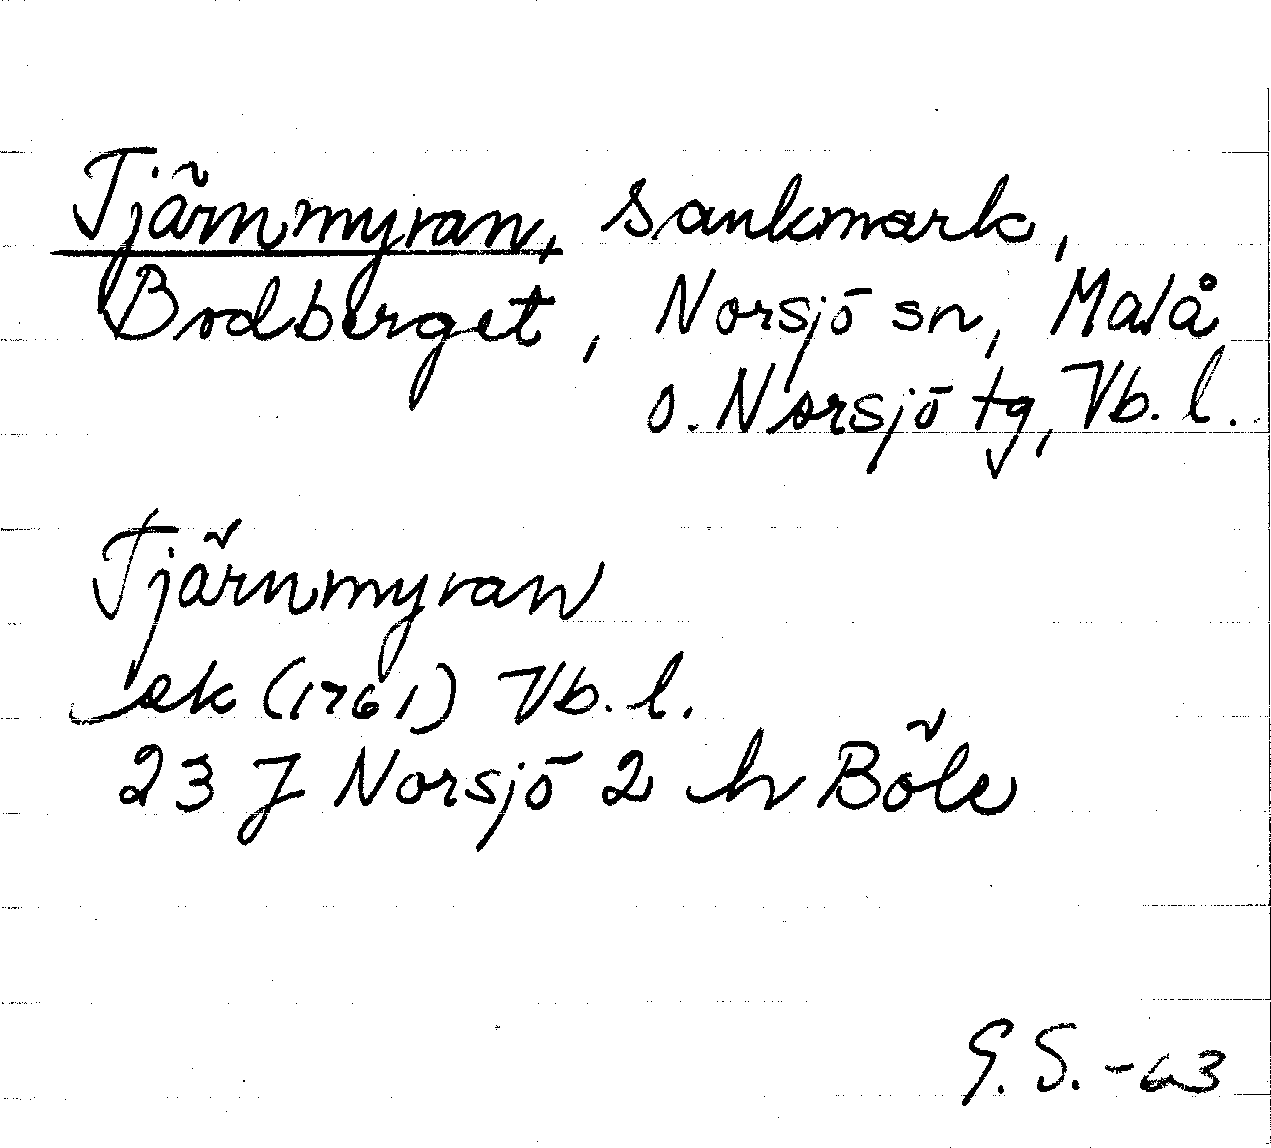 Tjärnmyran, sankmark,
Bodberget, Norsjö sn, Malå
o. Norsjö tg, Vb. l.
Tjärnmyran
ek (1961) Vb. l.
23 J Norsjö 2 h Böle
G. S. -63